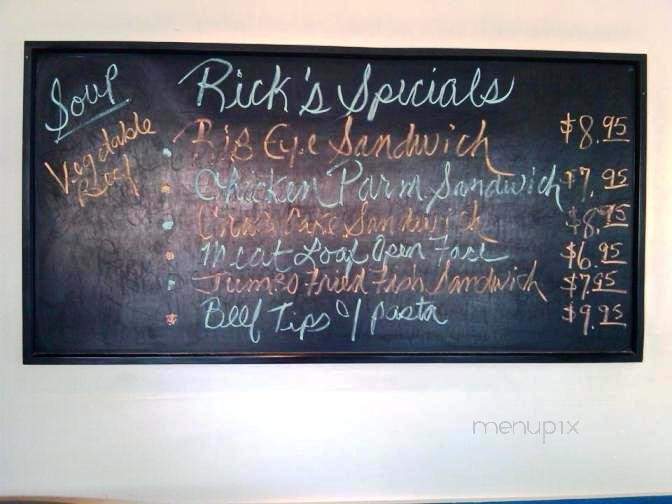 Soup
Vegetable
Beef
Rick's Specials
Rib Eye Sandwich $8.95
Chicken Parm Sandwich $7.95
Crab Cake Sandwich $8.95
Meat Loaf Open Face $6.95
Jumbo Fried Fish Sandwich $7.95
Beef Tips w/ pasta $9.95
menupix